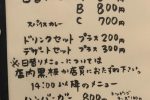 B 800円
C 700円
スパイスカレー
ドリンクセット プラス 200円
デザートセット プラス 300円
※日替りメニューについては
店内黒板か店員におたずね下さい。
14:00以降のメニュー
ハンバーガー 800円